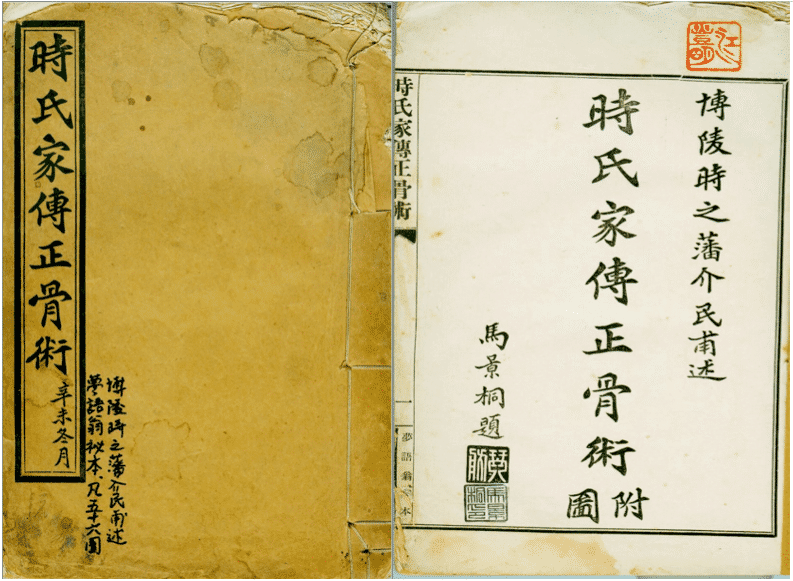 時氏家傳正骨術
辛未冬月
博陵時之藩介民甫述
夢語翁秘本凡五十六圖
博陵時之藩介民甫述
時氏家傳正骨術
附圖
馬景桐題
時氏家傳正骨術
一
夢語翁
本